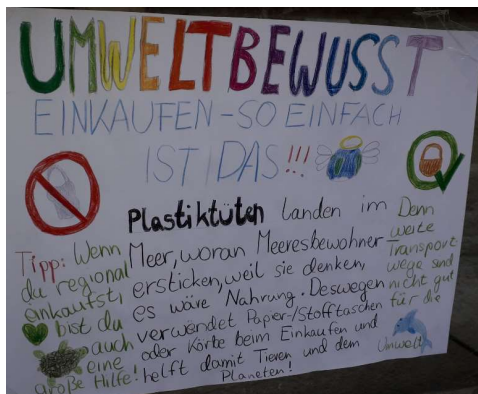 UMWELTBEWUSST
EINKAUFEN - SO EINFACH
IST DAS!!!
Plastiktüten landen im
Meer, woran Meeresbewohner
ersticken, weil sie denken,
es wäre Nahrung. Deswegen
verwendet Papier-/Stofftaschen
oder Körbe beim Einkaufen und
helft damit Tieren und dem
Planeten!
Tipp: Wenn
du regional
einkaufst,
bist du
auch
eine
große Hilfe!
Denn
weite
Transport-
wege sind
nicht gut
für die
Umwelt!